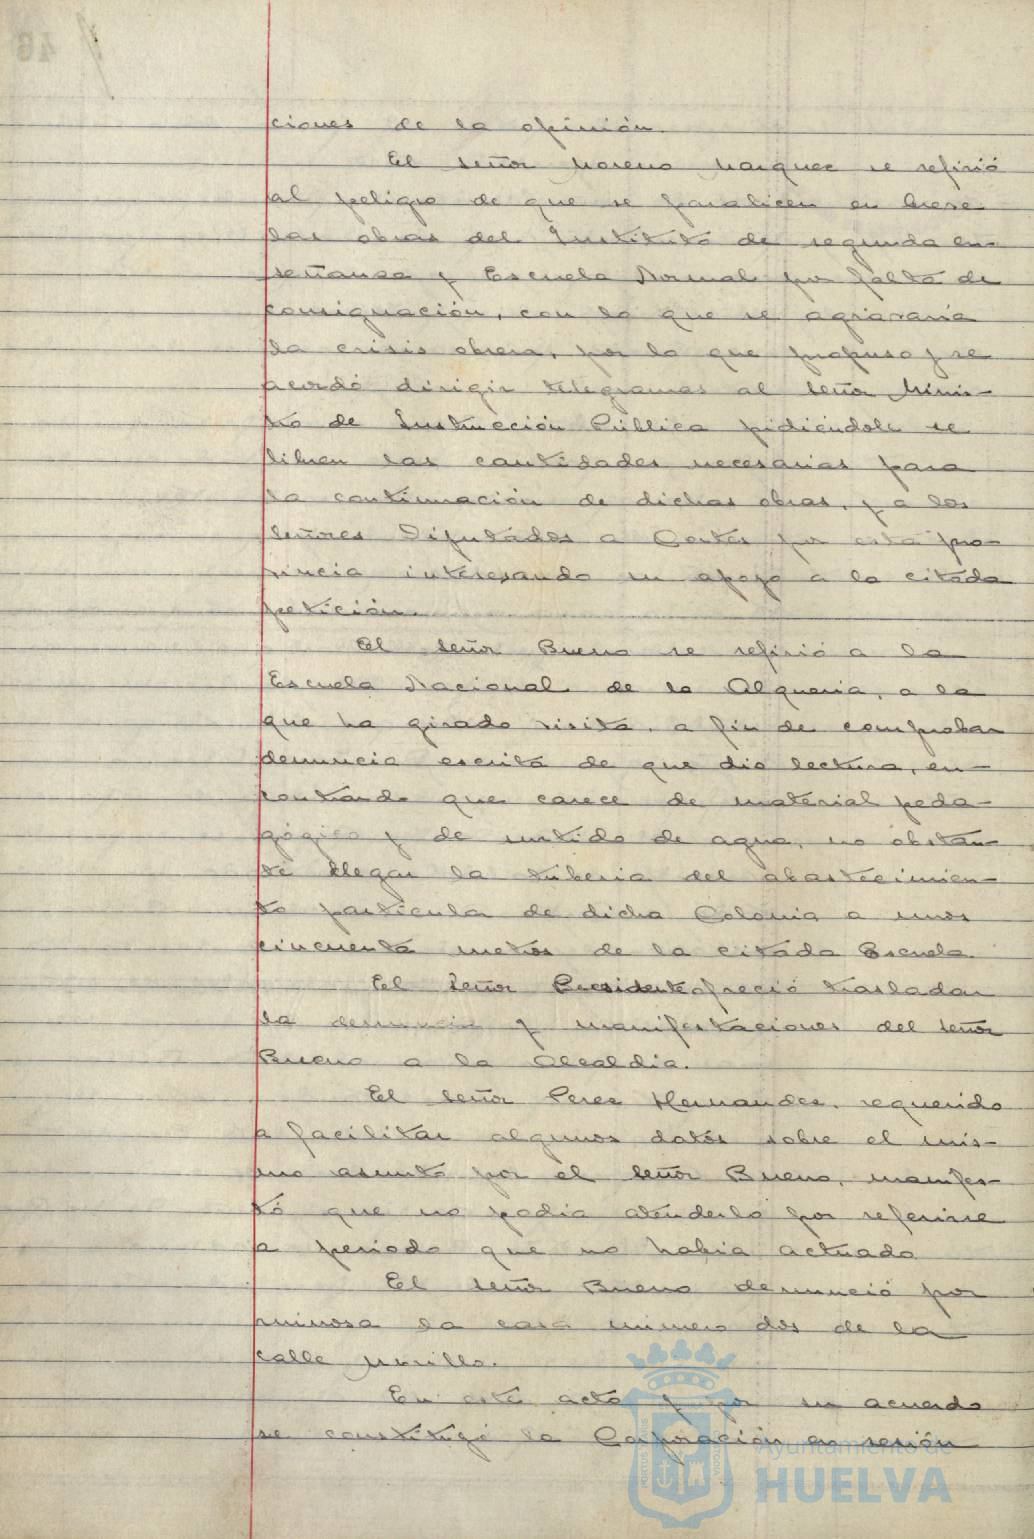 ciones de la opinión.
El señor Moreno Marquez se refirió
al peligro de que se paralicen en breve
las obras del Instituto de segunda en-
señanza y Escuela Normal por falta de
consignación, con lo que se agravaria
la crisis obrera, por lo que propuso y se
acordó dirigir telegramas al señor Minis-
tro de Instrucción Pública pidiéndole se
libren las cantidades necesarias para
la continuación de dichas obras, y a los
señores Diputados a Cortes por esta pro-
vincia interesando su apoyo a la citada
petición.
El señor Bueno se refirió a la
Escuela Nacional de la Alqueria, a la
que ha girado visita, a fin de comprobar
denuncia escrita de que dio lectura, en-
contrando que carece de material peda-
gógico y de surtido de agua, no obstan-
te llegar la tuberia del abastecimien-
to particular de dicha Colonia a unos
cincuenta metros de la citada Escuela.
El Señor Presidente ofreció trasladar
la denuncia y manifestaciones del señor
Bueno a la Alcaldia.
El señor Perez Hernandez, requerido
a facilitar algunos datos sobre el mis-
mo asunto por el señor Bueno, manifes-
tó que no podia atenderlo por referirse
a periodo que no habia actuado
El señor Bueno denunció por
ruinosa la casa número dos de la
calle Murillo.
En este acto y por su acuerdo
se constituyó la Corporación en sesión
Ayuntamiento de
HUELVA